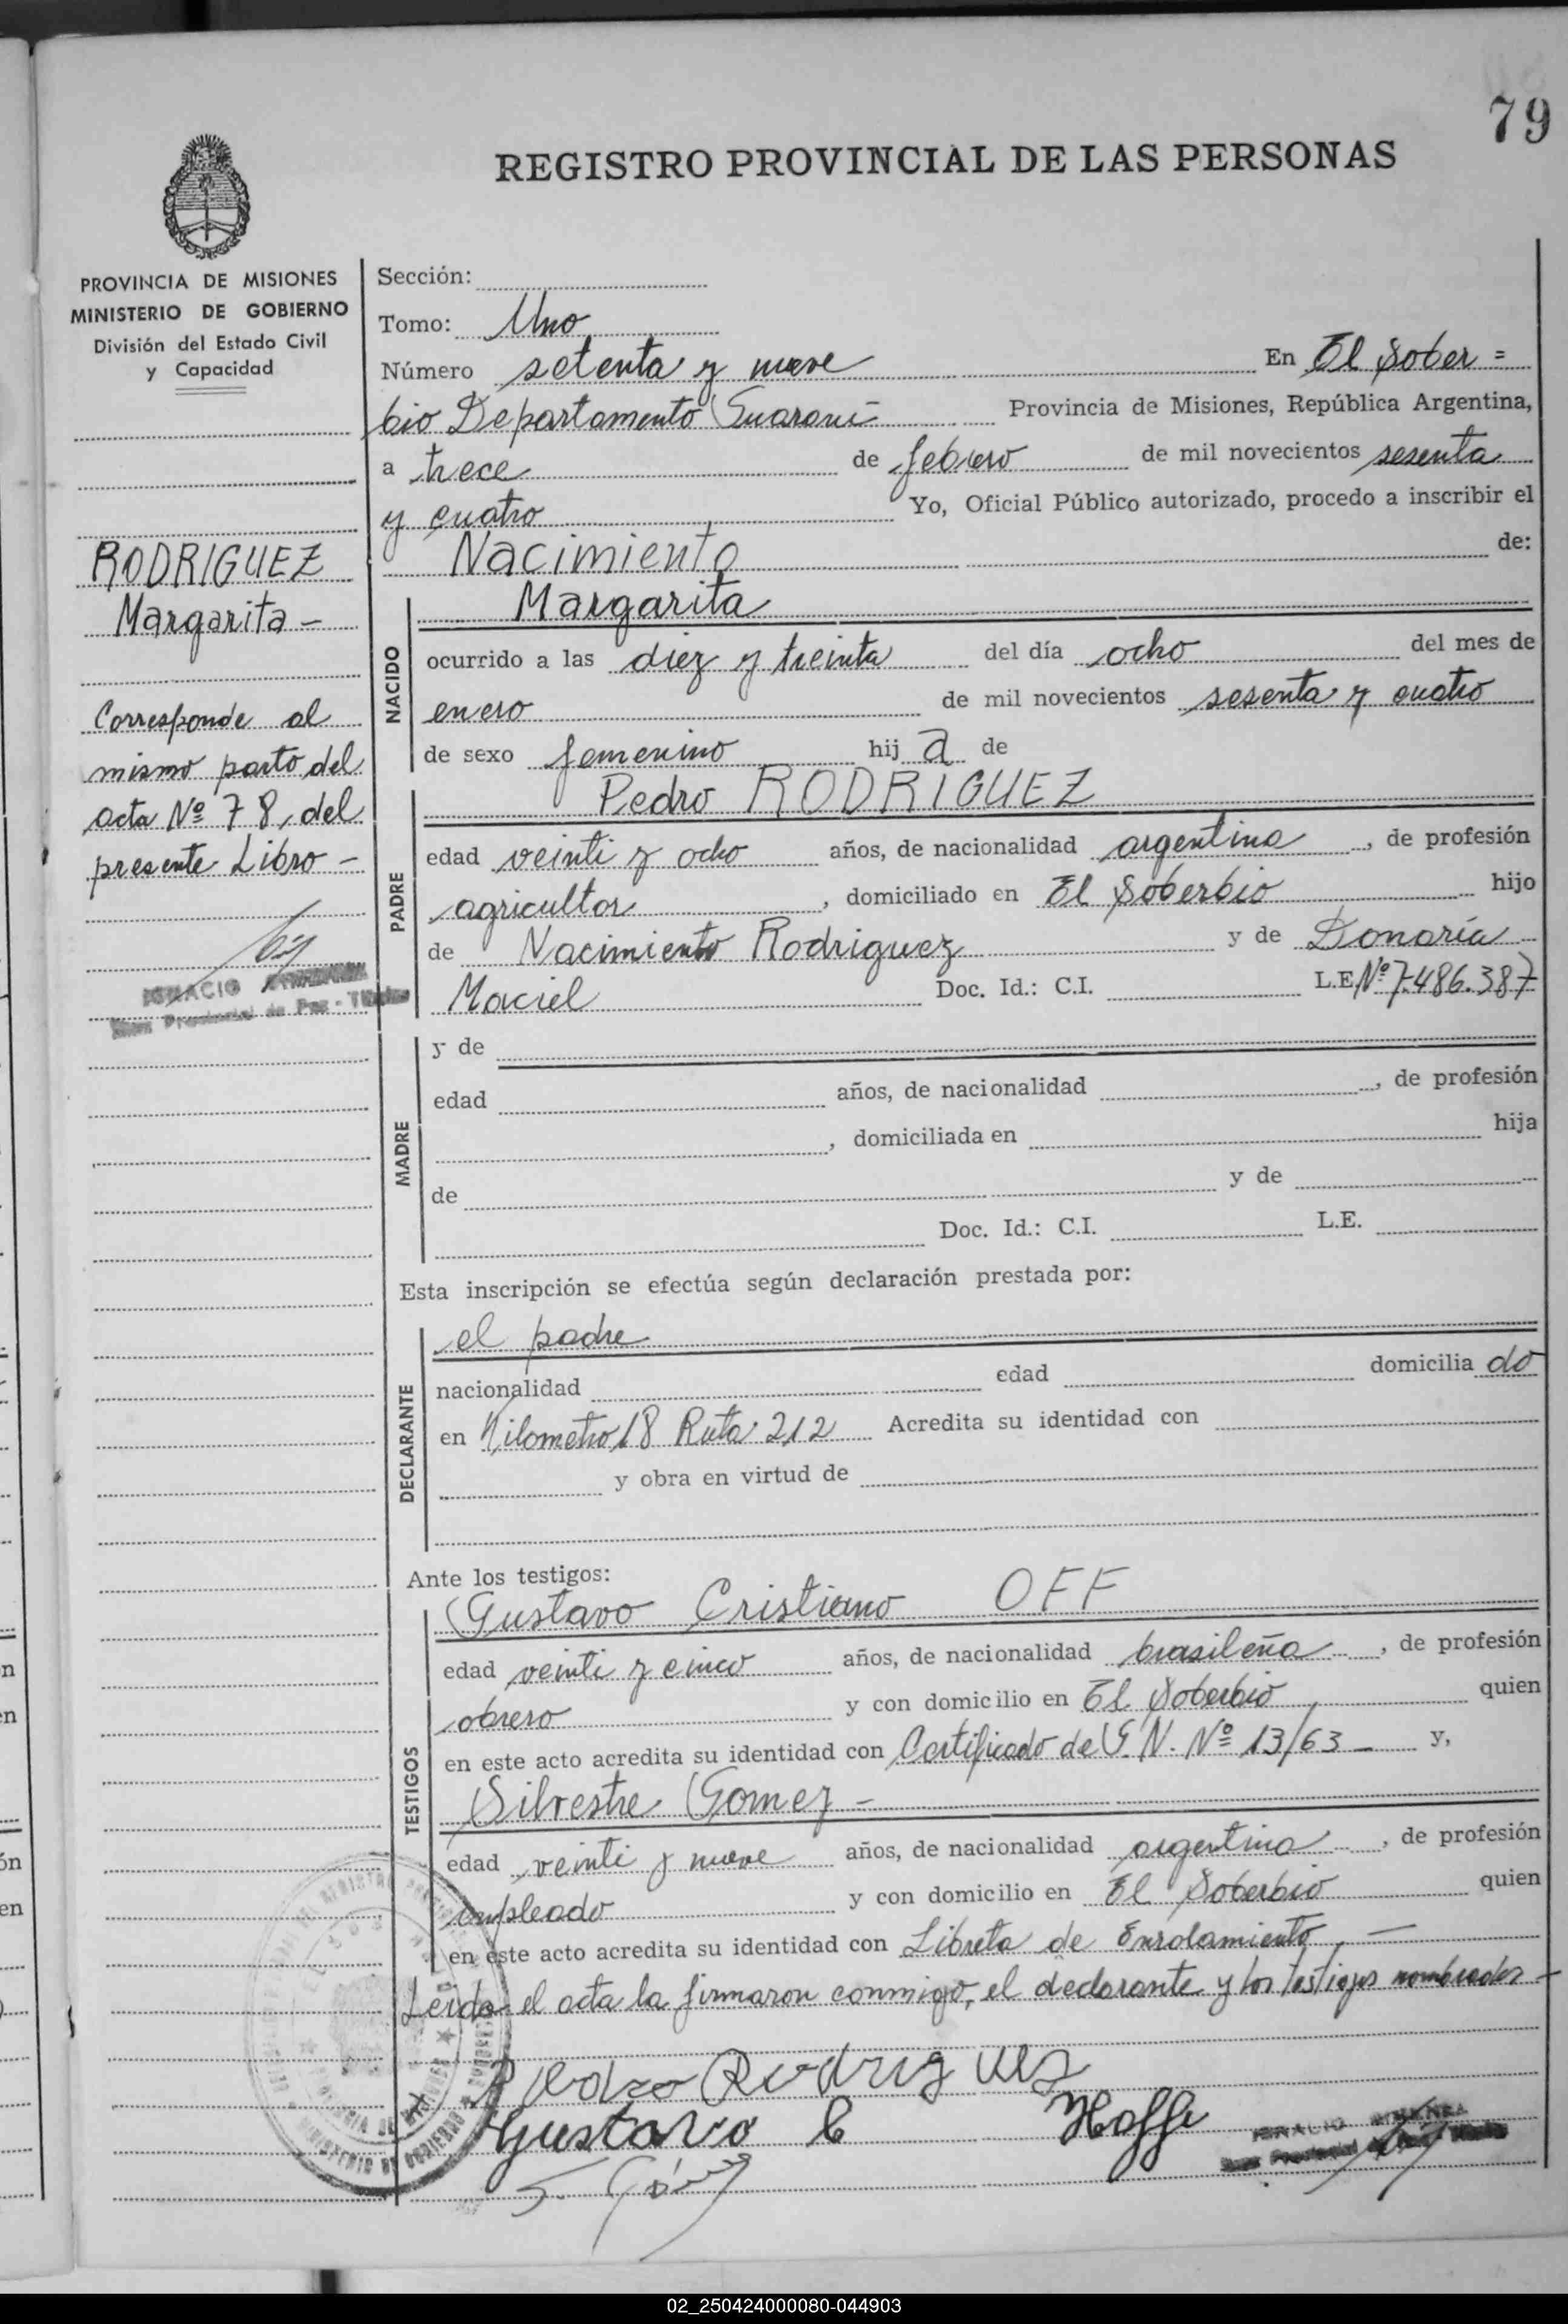 79
REGISTRO PROVINCIAL DE LAS PERSONAS
PROVINCIA DE MISIONES
MINISTERIO DE GOBIERNO
División del Estado Civil
y Capacidad
RODRIGUEZ
Margarita -
Corresponde al
mismo parto del
acta Nº 78, del
presente Libro -
IGNACIO
Juez Provincial de Paz - Titular
Sección:
Tomo: Uno
Número setenta y nueve En El Sober =
bio Departamento Guaraní Provincia de Misiones, República Argentina,
a trece de febrero de mil novecientos sesenta
y cuatro Yo, Oficial Público autorizado, procedo a inscribir el
Nacimiento de:
NACIDO
Margarita
ocurrido a las diez y treinta del día ocho del mes de
enero de mil novecientos sesenta y cuatro
de sexo femenino hij a de
PADRE
Pedro RODRIGUEZ
edad veinti y ocho años, de nacionalidad argentina, de profesión
agricultor, domiciliado en El Soberbio hijo
de Nacimiento Rodriguez y de Donaría
Maciel Doc. Id.: C.I. L.E Nº 7.486.387
MADRE
y de
edad años, de nacionalidad , de profesión
, domiciliada en hija
de y de
Doc. Id.: C.I. L.E.
Esta inscripción se efectúa según declaración prestada por:
DECLARANTE
el padre
nacionalidad edad domicilia do
en Kilometro 18 Ruta 212 Acredita su identidad con
y obra en virtud de
Ante los testigos:
TESTIGOS
Gustavo Cristiano OFF
edad veinti y cinco años, de nacionalidad brasileña, de profesión
obrero y con domicilio en El Soberbio quien
en este acto acredita su identidad con Certificado de G.N. Nº 13/63 - y,
Silvestre Gomez -
edad veinti y nueve años, de nacionalidad argentina, de profesión
empleado y con domicilio en El Soberbio quien
en este acto acredita su identidad con Libreta de Enrolamiento, -
Leida el acta la firmaron conmigo, el declarante y los testigos nombrados -
Pedro Rodriguez
Gustavo C Hoff
S. Gómez
IGNACIO
Juez Provincial de Paz Titular
02_250424000080-044903